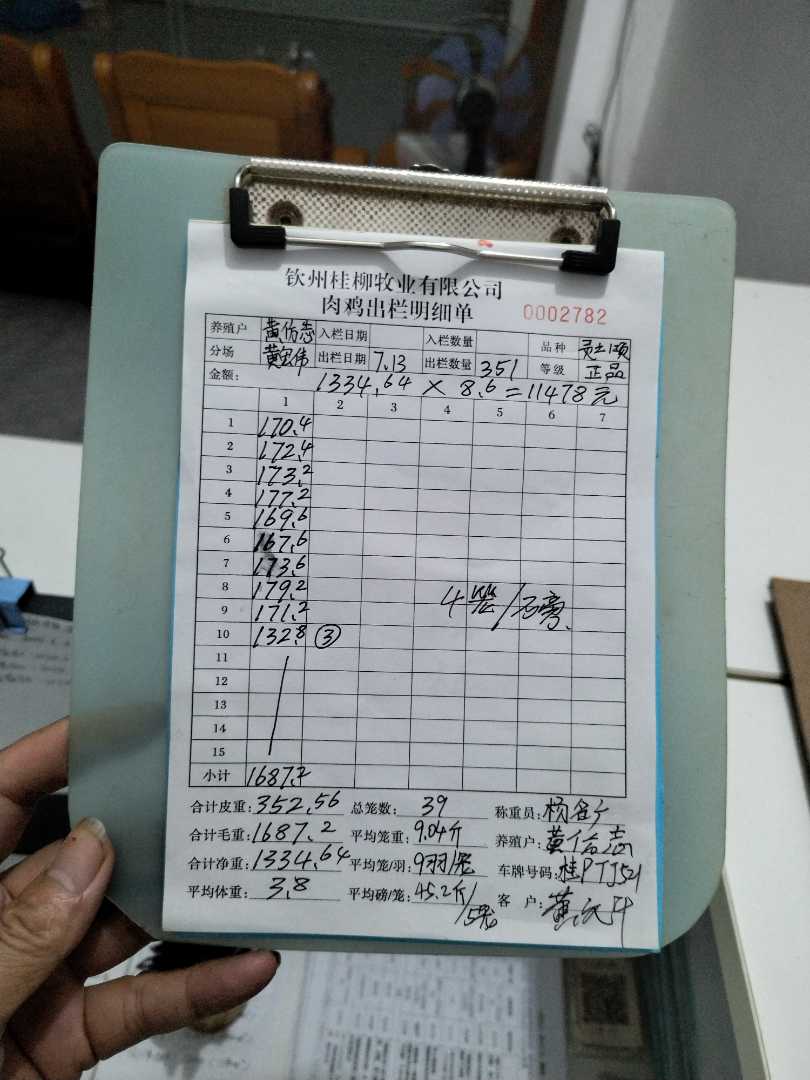 钦州桂柳牧业有限公司
肉鸡出栏明细单 0002782
养殖户 黄 志 入栏日期 入栏数量 品种 项
分场 黄 伟 出栏日期 7.13 出栏数量 351 等级 正品
金额: 1334.64 × 8.6 = 11478元
1 2 3 4 5 6 7
1 170.4
2 172.4
3 173.2
4 177.2
5 169.6
6 167.6
7 173.6
8 179.2
9 171.2 4笼/石膏
10 132.8 ③
11
12
13
14
15
小计 1687.2
合计皮重: 352.56 总笼数: 39 称重员: 杨
合计毛重: 1687.2 平均笼重: 9.04斤 养殖户: 黄 志
合计净重: 1334.64 平均笼/羽: 9羽/笼 车牌号码: 桂PTJ521
平均体重: 3.8 平均磅/笼: 45.2斤/5笼 客 户: 黄